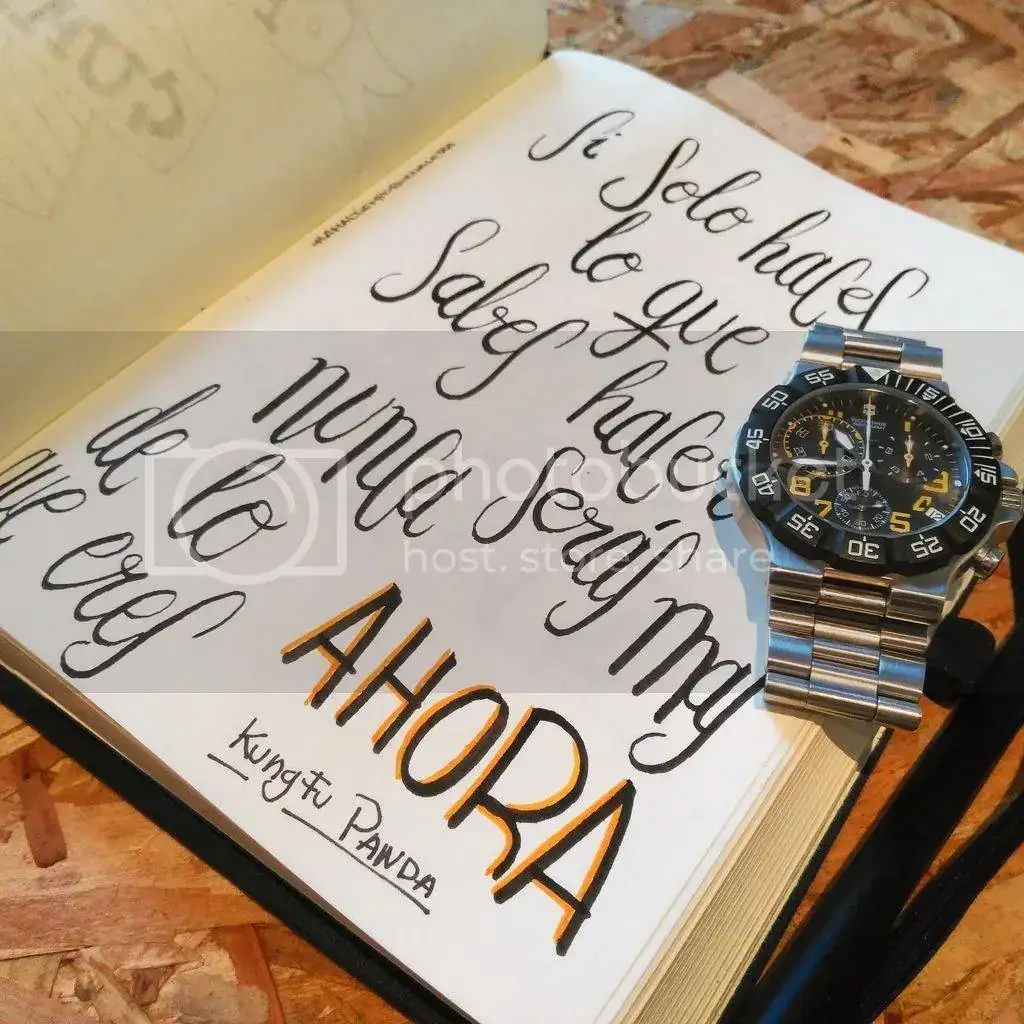 Si Solo haces
lo que
Sabes hacer
nunca serás mas
de lo
que eres
AHORA
Kung Fu PANDA
photobucket
host. store. share.
55
50
45
40
35
30
25
20
15
10
5
8
7
5